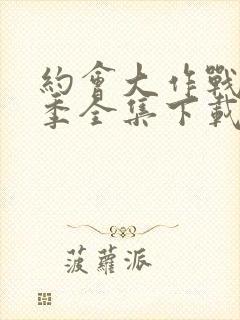 約會大作戰
季全集下載
菠蘿派